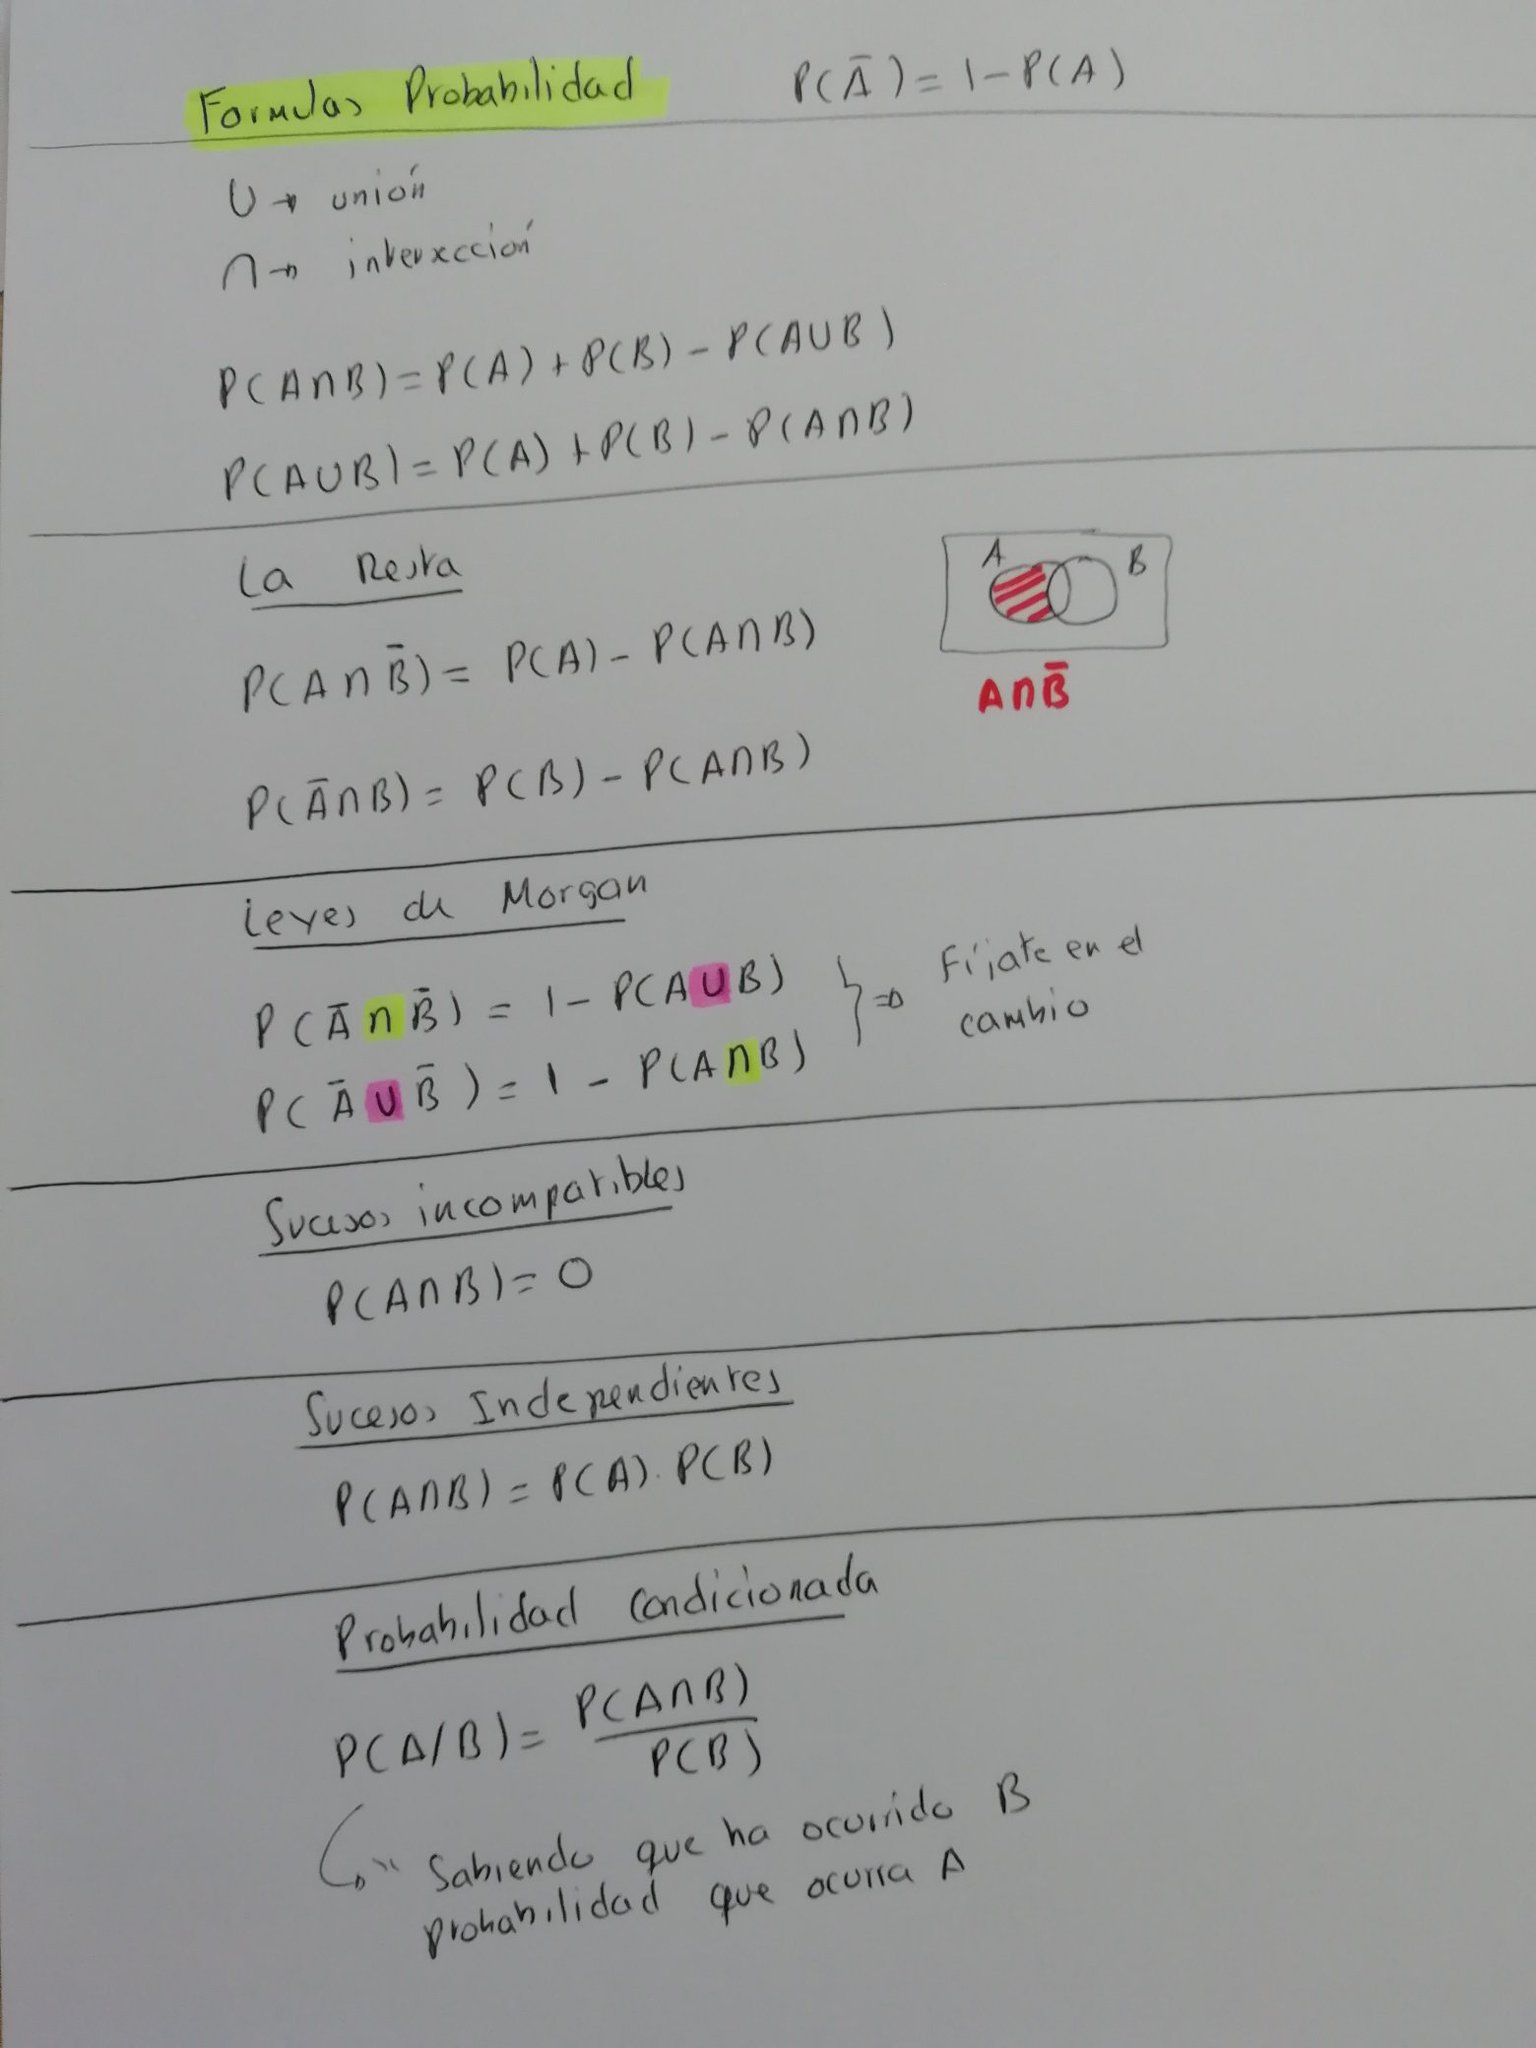 Formulas Probabilidad P(Ā) = 1 - P(A)
U → unión
∩ → intersección
P(A∩B) = P(A) + P(B) - P(A∪B)
P(A∪B) = P(A) + P(B) - P(A∩B)
La Resta
A B
P(A∩B̄) = P(A) - P(A∩B)
A∩B̄
P(Ā∩B) = P(B) - P(A∩B)
Leyes de Morgan
P(Ā∩B̄) = 1 - P(A∪B) } ⇒ Fíjate en el
cambio
P(Ā∪B̄) = 1 - P(A∩B)
Sucesos incompatibles
P(A∩B) = 0
Sucesos Independientes
P(A∩B) = P(A) · P(B)
Probabilidad Condicionada
P(A/B) = P(A∩B)
P(B)
↳ " Sabiendo que ha ocurrido B
probabilidad que ocurra A